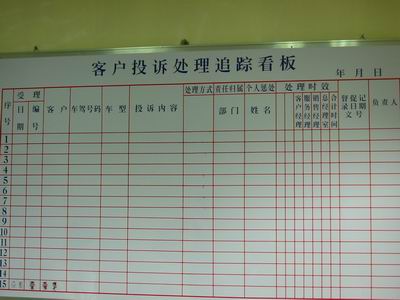 客户投诉处理追踪看板
年 月 日
序号 受理 日期 编号 客户 车驾号码 车型 投诉内容 处理方式 责任归属 部门 个人惩处 姓名 处理时效 客户经理 服务经理 销售经理 总经理室 合计时间 督促日期 记录文号 负责人
1
2
3
4
5
6
7
8
9
10
11
12
13
14
15